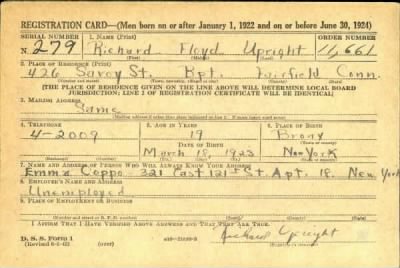 REGISTRATION CARD—(Men born on or after January 1, 1922 and on or before June 30, 1924)
SERIAL NUMBER 1. NAME (Print) ORDER NUMBER
N. 279 Richard Floyd Upright 11,661
(First) (Middle) (Last)
2. PLACE OF RESIDENCE (Print)
426 Savoy St. Bpt. Fairfield Conn.
(Number and street) (Town, township, village, or city) (County) (State)
[THE PLACE OF RESIDENCE GIVEN ON THE LINE ABOVE WILL DETERMINE LOCAL BOARD
JURISDICTION; LINE 2 OF REGISTRATION CERTIFICATE WILL BE IDENTICAL]
3. MAILING ADDRESS
Same
4. TELEPHONE 5. AGE IN YEARS 6. PLACE OF BIRTH
4-2009 19 Bronx
DATE OF BIRTH
March 18 1923 New York
7. NAME AND ADDRESS OF PERSON WHO WILL ALWAYS KNOW YOUR ADDRESS
Emma Coppo 321 East 121st St. Apt. 18. New York
8. EMPLOYER'S NAME AND ADDRESS
Unemployed
9. PLACE OF EMPLOYMENT OR BUSINESS
(Number and street or R. F. D. number) (Town) (County) (State)
I AFFIRM THAT I HAVE VERIFIED ABOVE ANSWERS AND THAT THEY ARE TRUE.
D. S. S. Form 1
Richard Upright